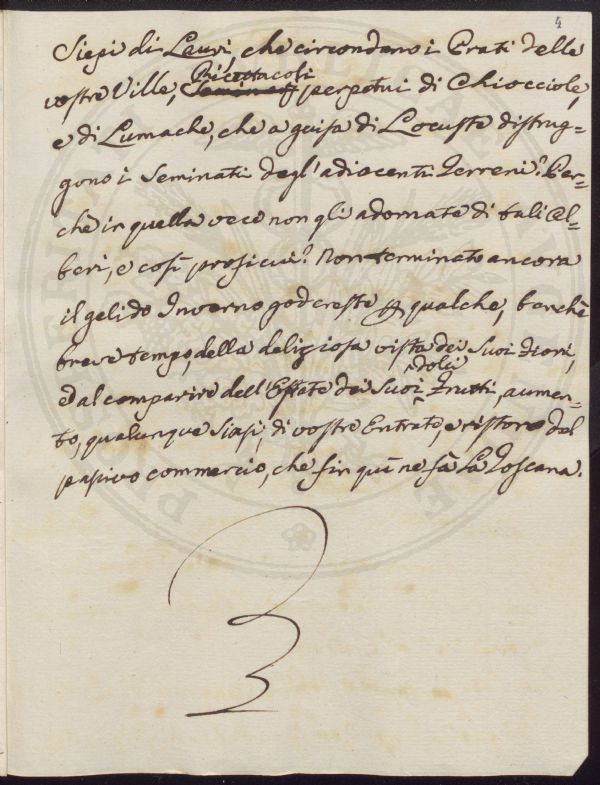 4
Siepi di Lauri che circondano i Prati delle
vostre Ville, Ricettacoli perpetui di Chiocciole,
e di Lumache, che a guisa di Locuste distrug=
gono i Seminati degl'adiacenti Terreni? Per=
che in quella vece non gli adornate di tali Al=
beri, e così proficui? Non terminato ancora
il gelido Inverno godereste p qualche, benchè
breve tempo, della deliziosa vista dei Suoi Fiori,
e dal comparire dell'Estate dei Suoi dolci Frutti, aumen=
to, qualunque siasi, di vostre Entrate, e ristoro del
passivo commercio, che fin quì ne fà La Toscana.